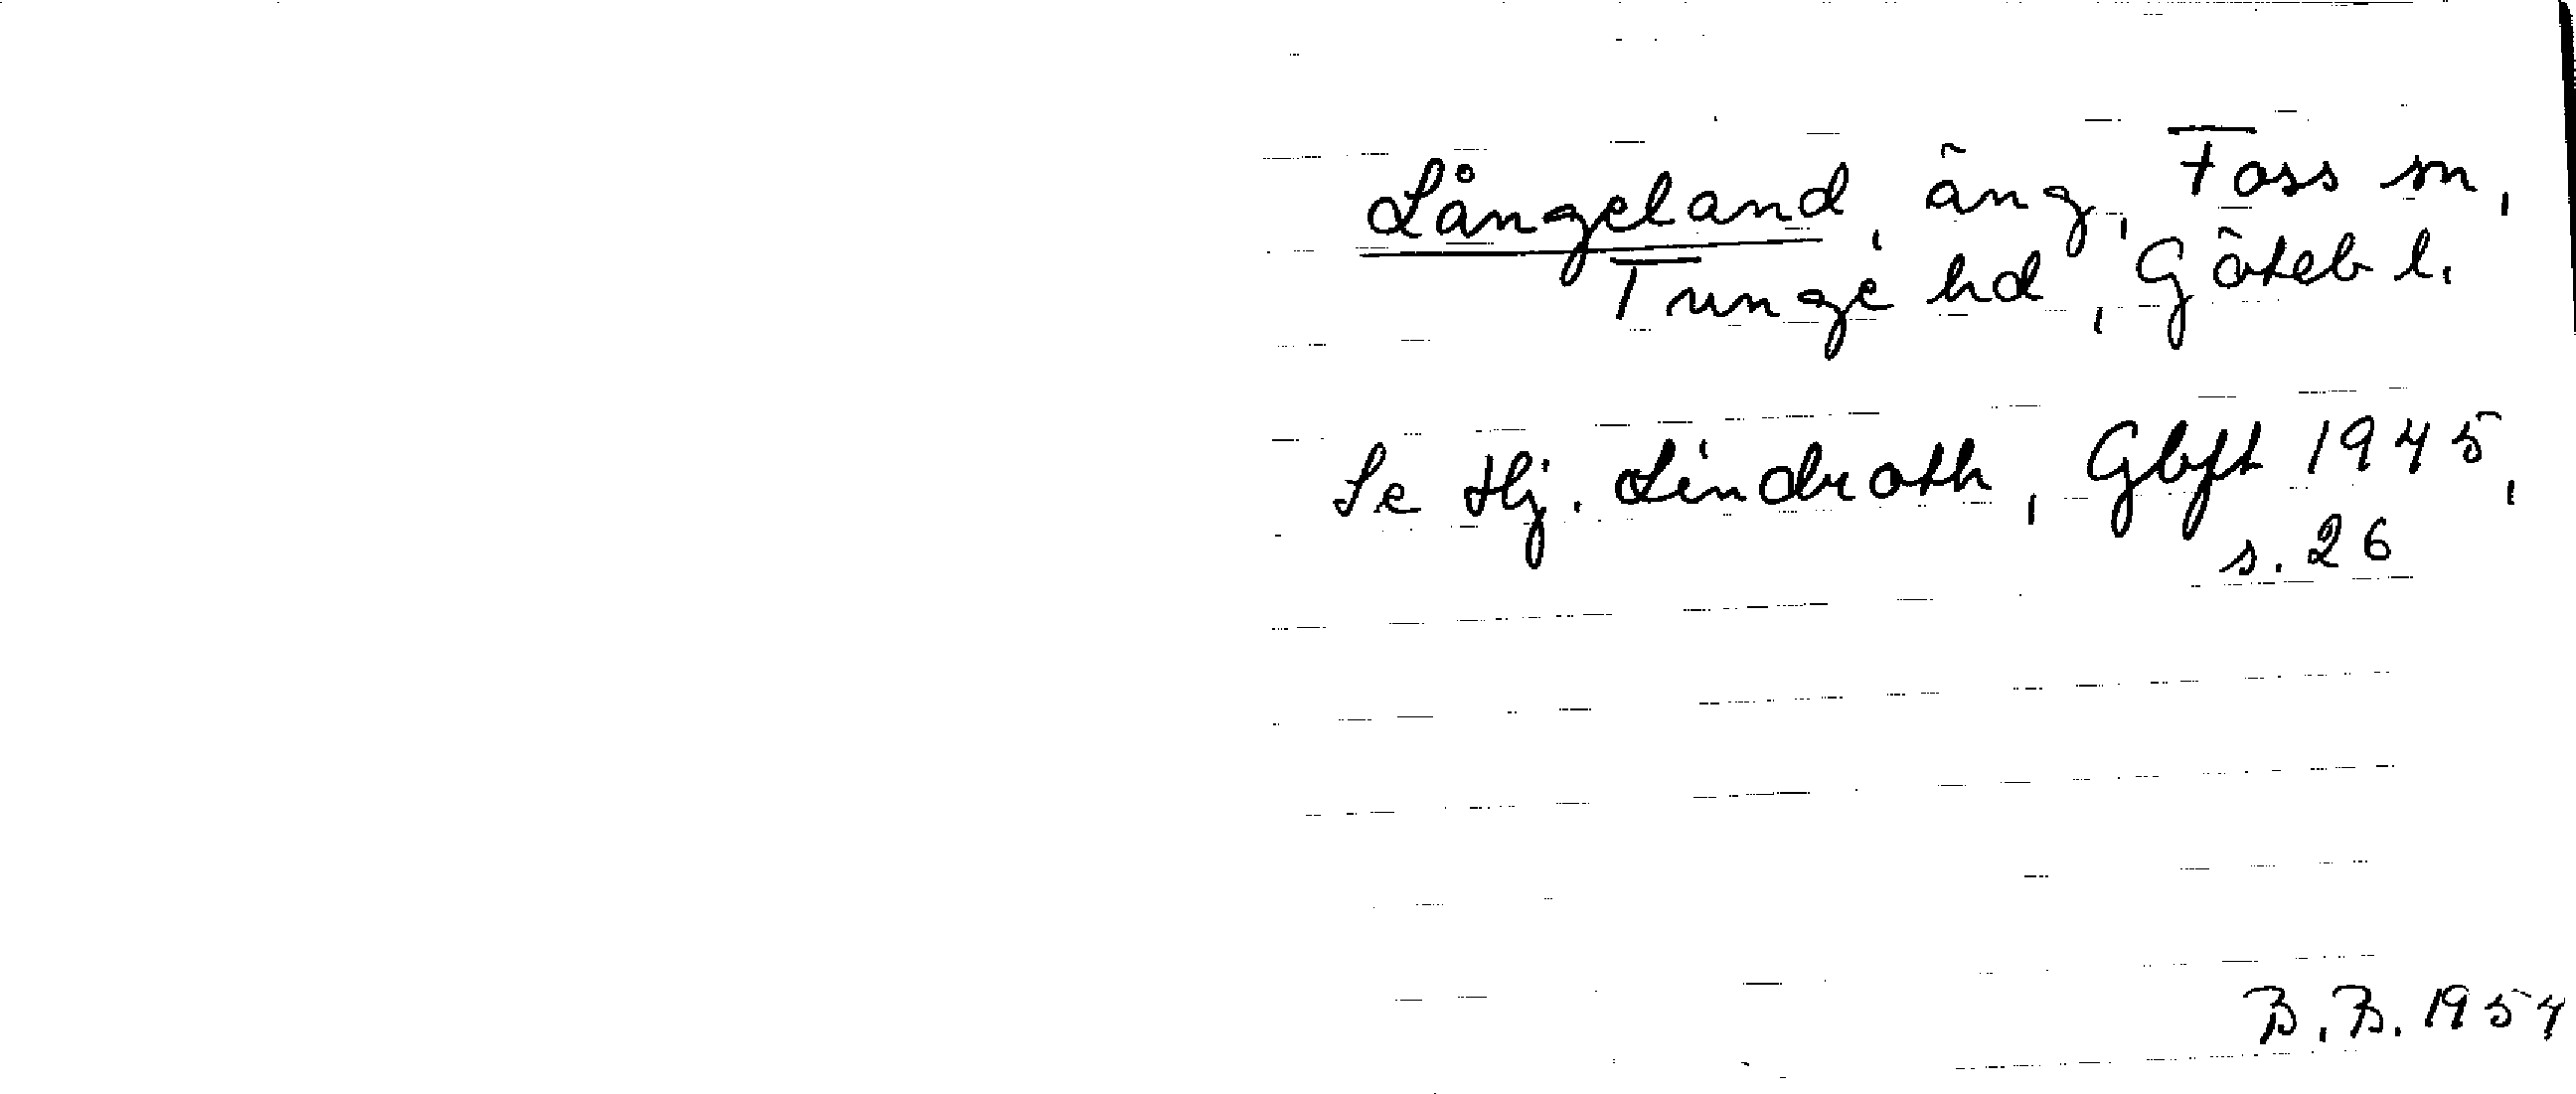 Långeland, äng, Foss sn,
Tunge hd, Göteb l.
Se Hj. Lindroth, Gbft 1945,
s. 26
B.B. 1954